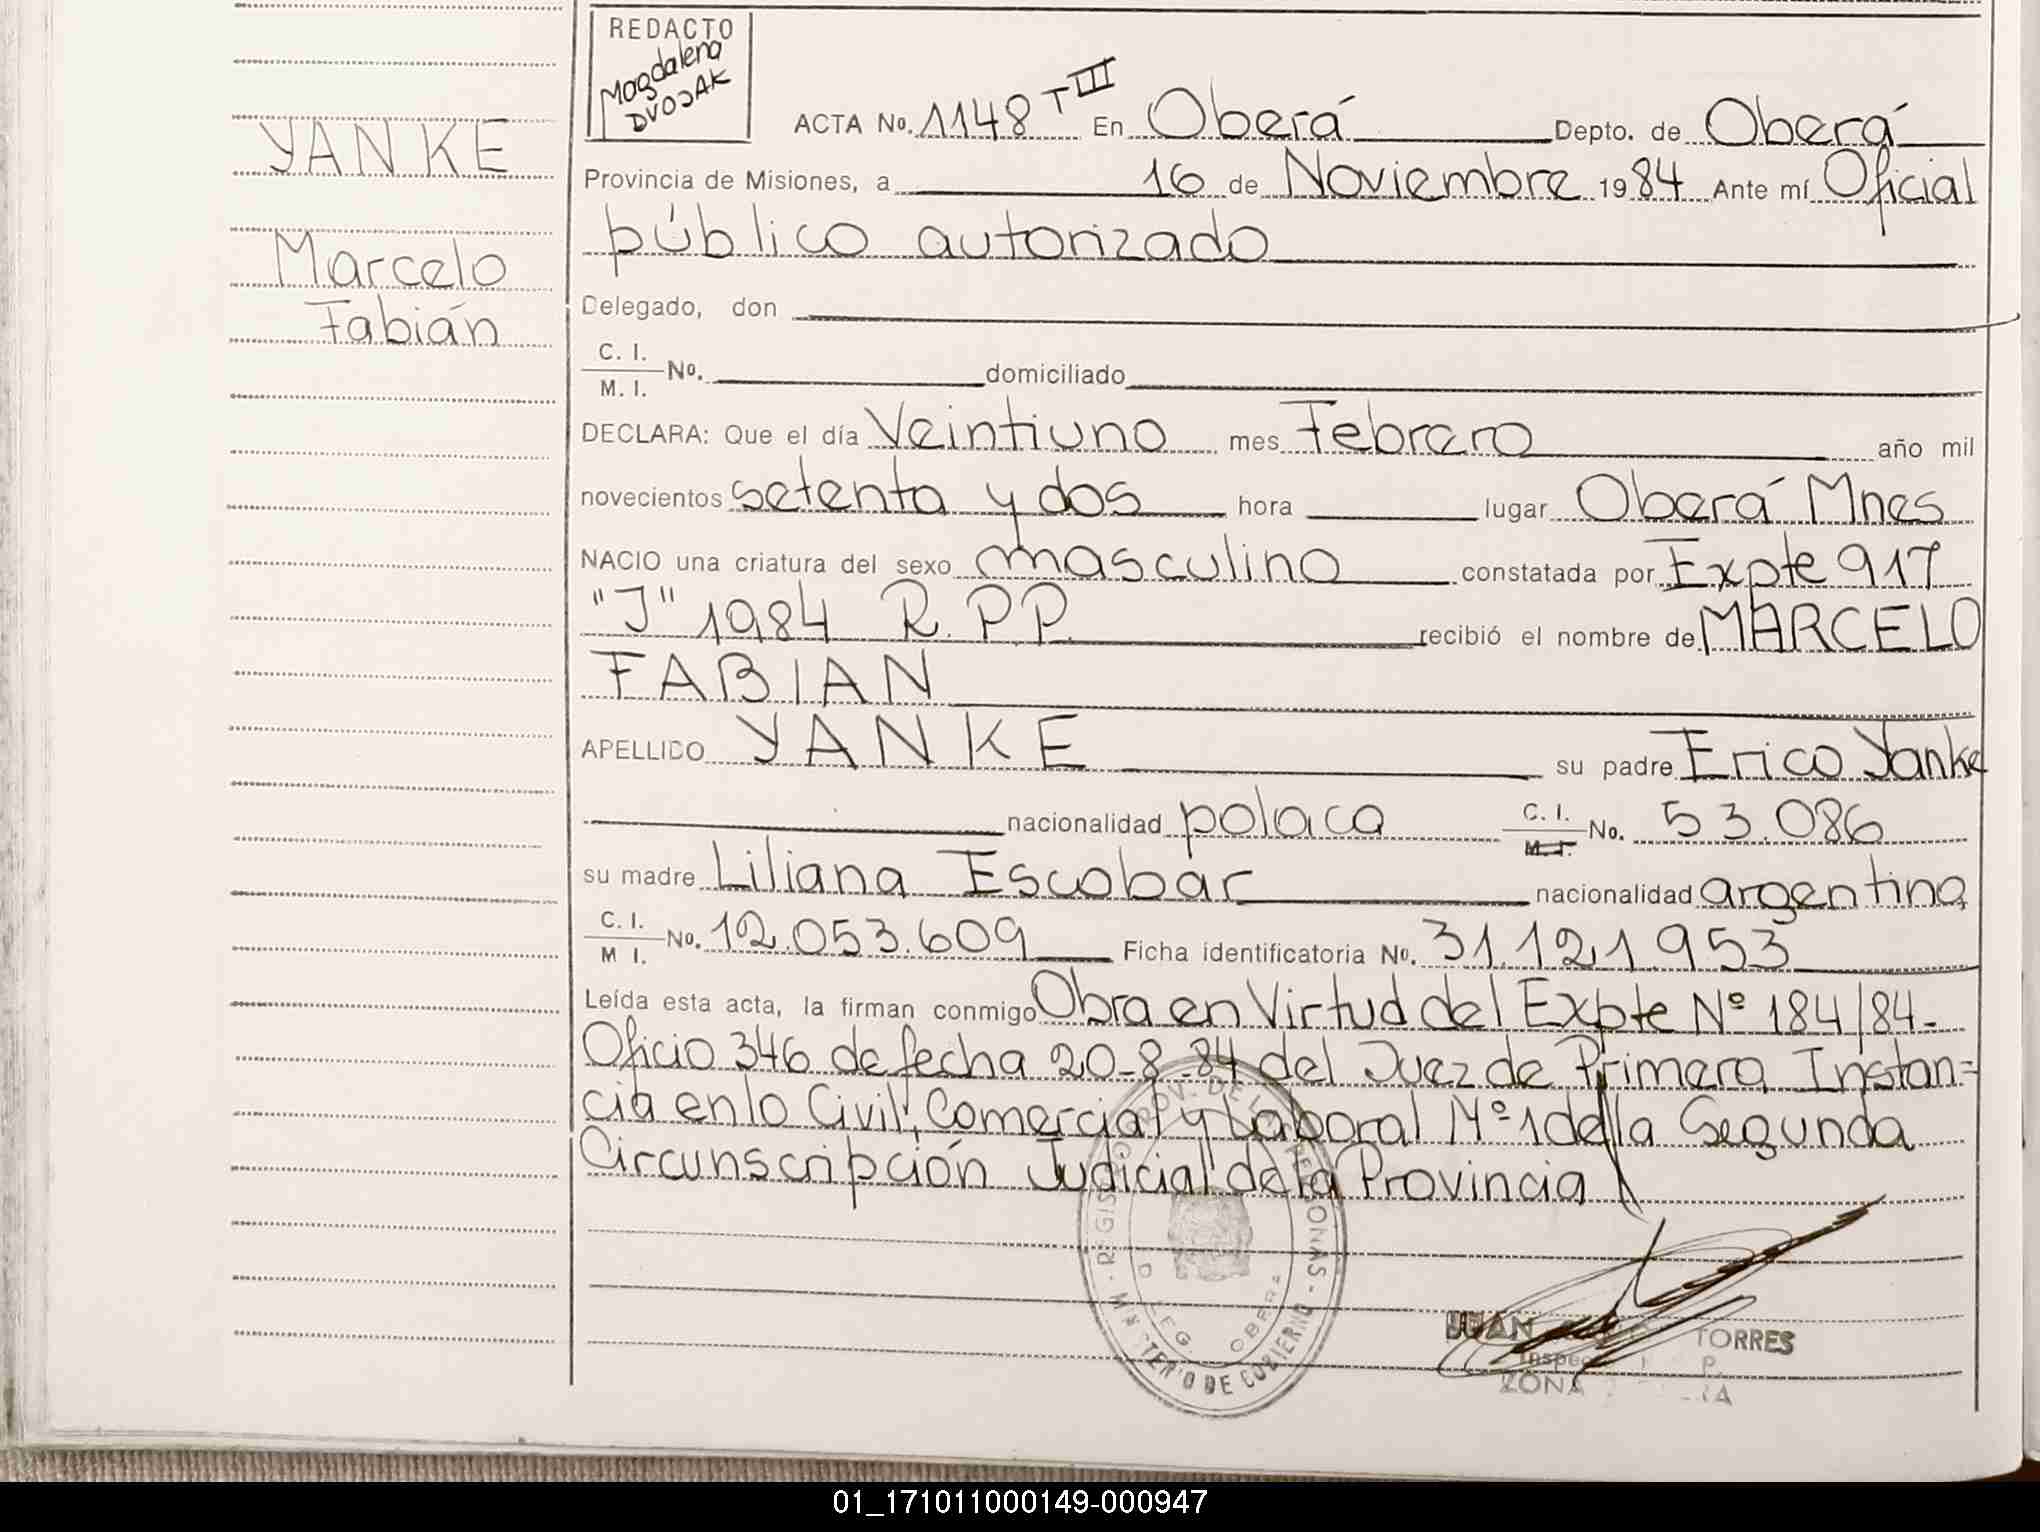 REDACTO
Magdalena
DVOJAK
YANKE
Marcelo
Fabián
ACTA No. 1148 T III En Oberá Depto. de Oberá
Provincia de Misiones, a 16 de Noviembre 1984 Ante mí Oficial
público autorizado
Delegado, don
C. I.
M. I. No. domiciliado
DECLARA: Que el día Veintiuno mes Febrero año mil
novecientos setenta y dos hora lugar Oberá Mnes
NACIO una criatura del sexo masculino constatada por Expte 917
"J" 1984 R.P.P. recibió el nombre de MARCELO
FABIAN
APELLIDO YANKE su padre Erico Yanke
nacionalidad polaca C. I. M. I. No. 53.086
su madre Liliana Escobar nacionalidad argentina
C. I.
M I. No. 12.053.609 Ficha identificatoria No. 31.121.953
Leída esta acta, la firman conmigo Obra en Virtud del Expte Nº 184/84-
Oficio 346 de fecha 20-8-84 del Juez de Primera Instan=
cia en lo Civil, Comercial y Laboral Nº 1 de la Segunda
Circunscripción Judicial de la Provincia
REGISTRO PROV. DE LAS PERSONAS - MINISTERIO DE GOBIERNO
DELEG. OBERA
JUAN TORRES
ZONA
01_171011000149-000947